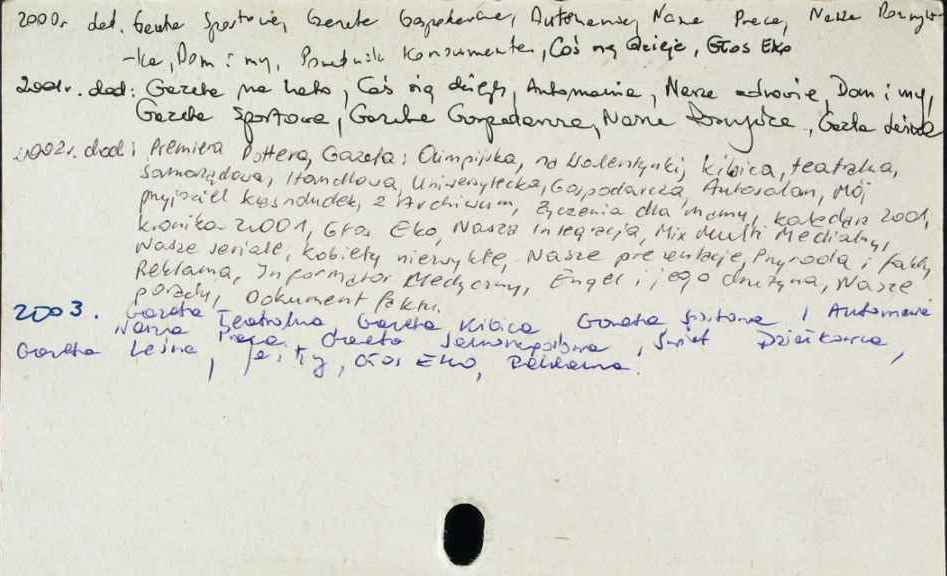 2000r. dod. Gazeta Sportowa, Gazeta Gospodarcza, Automania, Nasza Praca, Nasza Rozryw-
-ka, Dom i my, Poradnik Konsumenta, Coś się dzieje, Głos Eko
2001r. dod: Gazeta na lato, Coś się dzieje, Automania, Nasze zdrowie, Dom i my,
Gazeta Sportowa, Gazeta Gospodarcza, Nasza Rozrywka, Gazeta Leśna
2002r. dod: Premiera Pottera, Gazeta: Olimpijska, na Walentynki, kibica, teatralna,
Samorządowa, Handlowa, Uniwersytecka, Gospodarcza, Autosalon, Mój
przyjaciel, z Archiwum, Życzenia dla mamy, 2001,
kronika 2001, Głos Eko, Nasza Integracja, Mix Multi Medialny,
Nasze seriale, Kobiety niezwykłe, Nasze prezentacje, Przyroda i fakty,
Reklama, Informator Medyczny, Engel i jego drużyna, Nasze
porady, Dokument faktu.
2003. Gazeta Teatralna, Gazeta Kibica Gazeta sportowa, Automania
Nasza Praca, Gazeta Samorządowa, Świat Dzieciaka,
Gazeta Leśna, Ja i Ty, Głos Eko, Reklama.